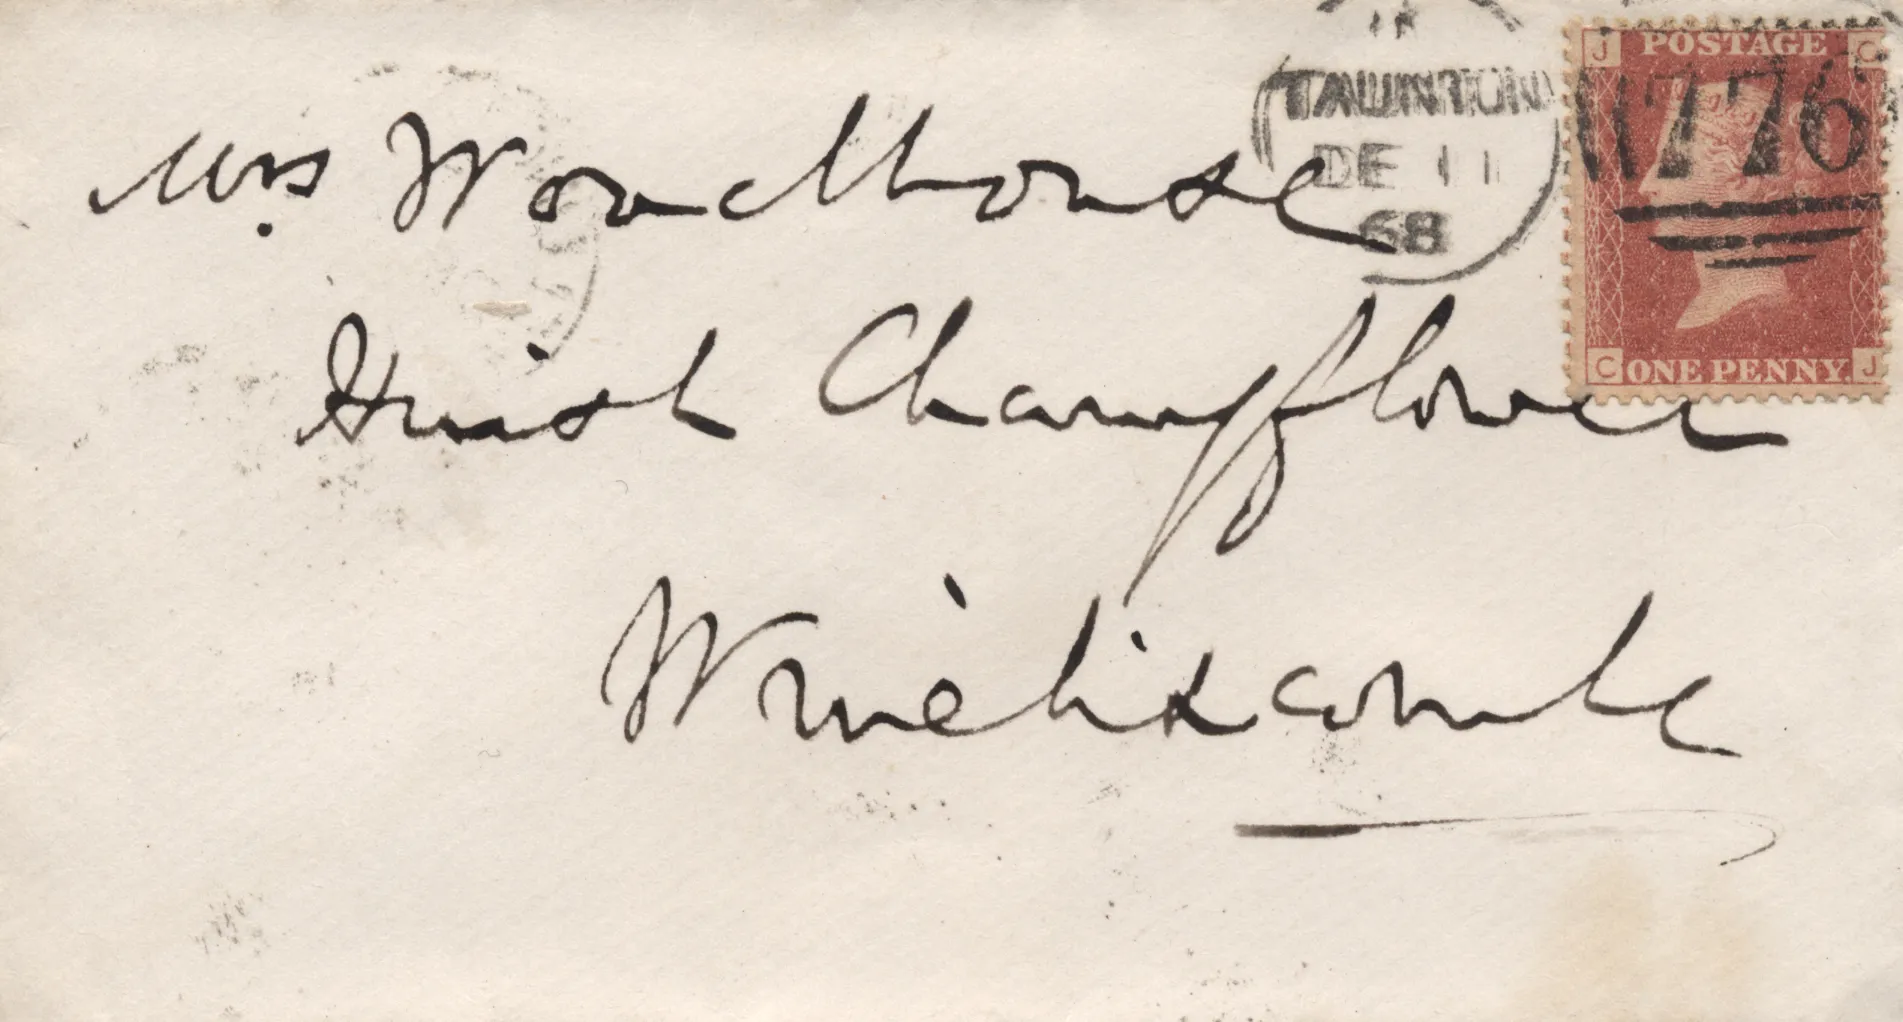 Mrs Woodhouse
Huish Champflower
Wiveliscombe
TAUNTON
DE 11
68
776
J POSTAGE C
C ONE PENNY. J